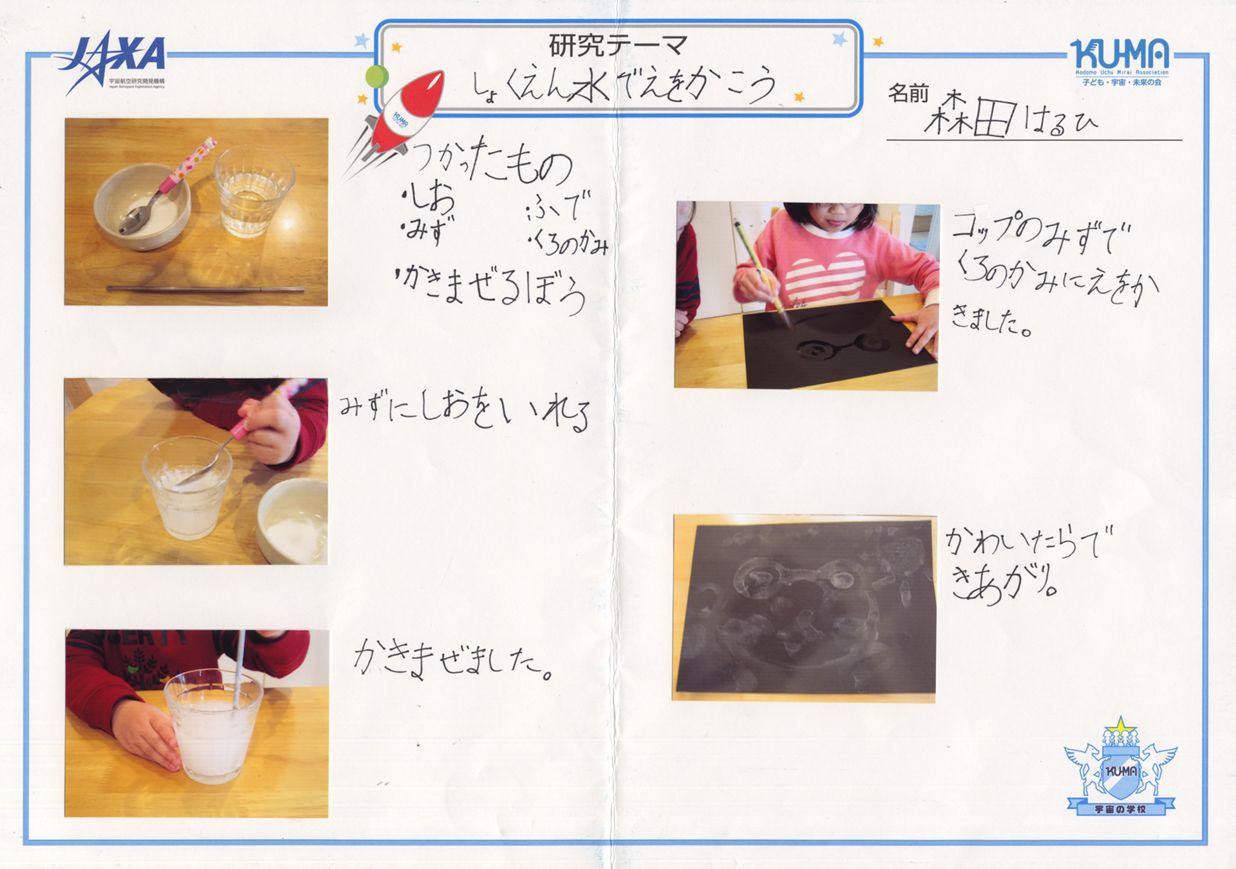 JAXA
宇宙航空研究開発機構
Japan Aerospace Exploration Agency
研究テーマ
しょくえん水でえをかこう
KU-MA
Kodomo Uchu Mirai Association
子ども・宇宙・未来の会
名前 森田はるひ
KU-MA
つかったもの
・しお
・みず
・かきまぜるぼう
・ふで
・くろのかみ
みずにしおをいれる
かきまぜました。
コップのみずで
くろのかみにえをか
きました。
かわいたらで
きあがり。
KU-MA
宇宙の学校